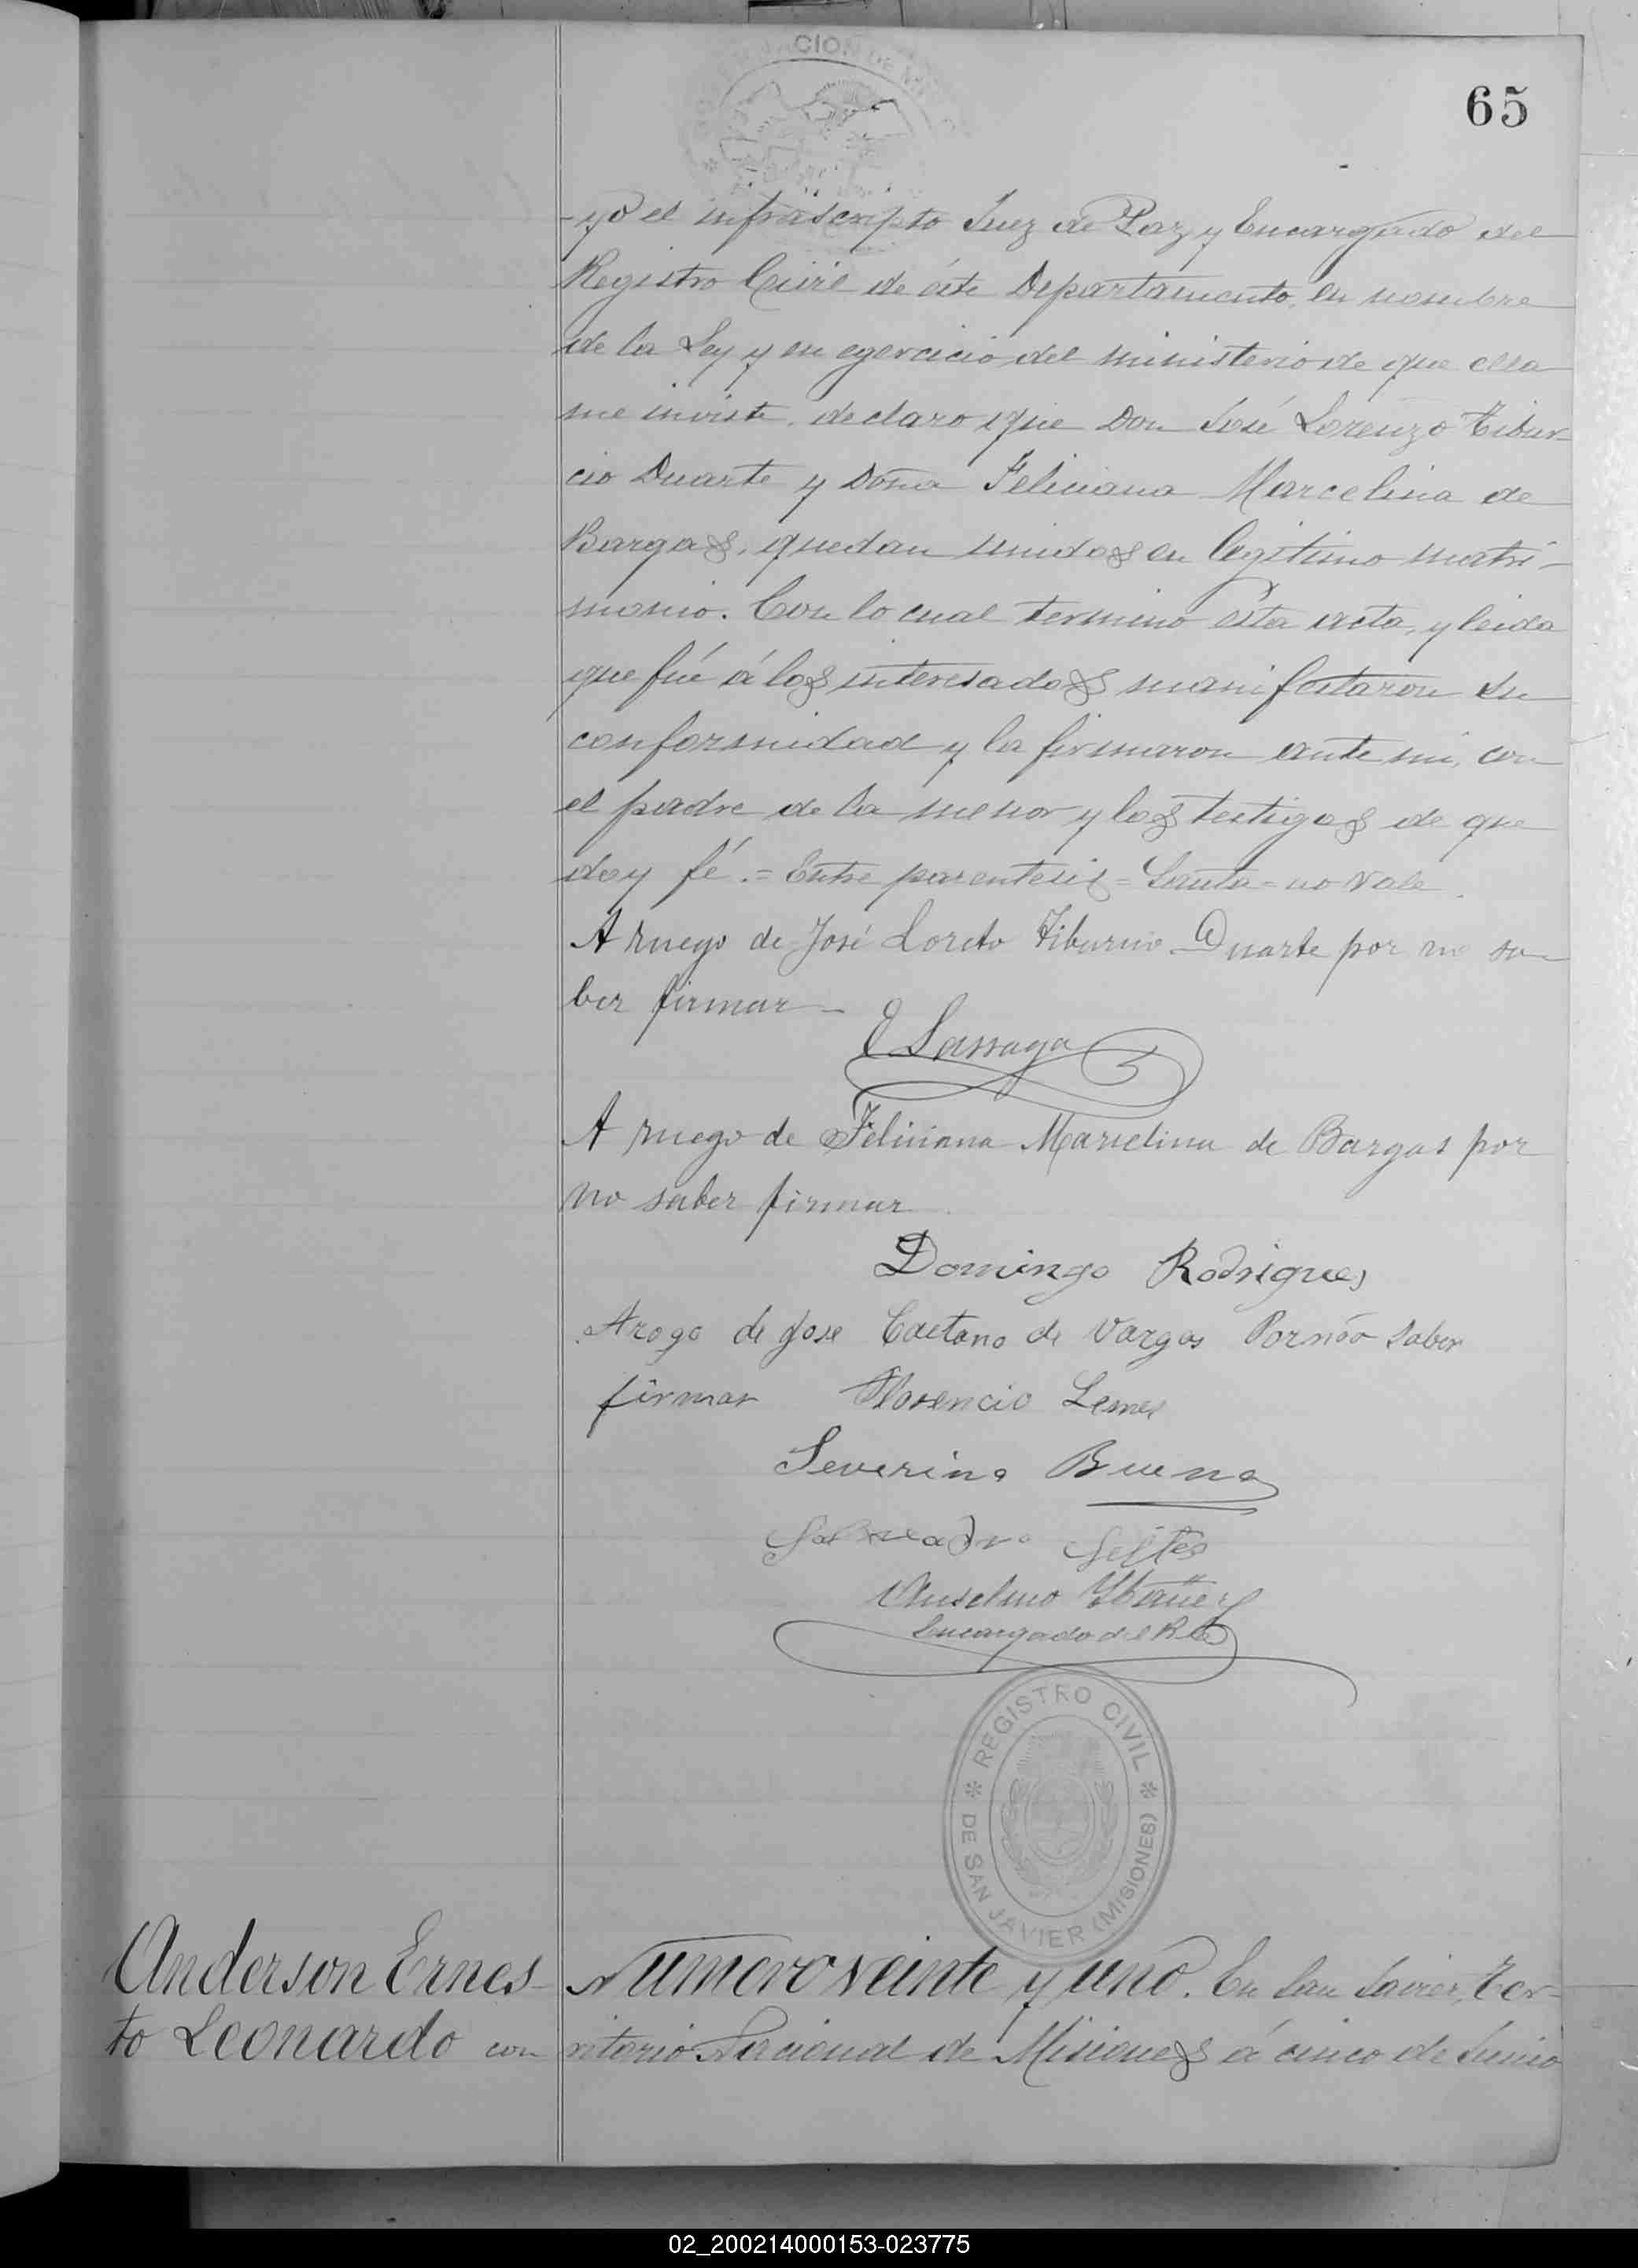 65
- yo el infrascripto Juez de Paz y Encargado del
Registro Civil de éste Departamento, en nombre
de la Ley y en egercicio del ministerio de que ella
me inviste, declaro que Don José Lorenzo Tibur-
cio Duarte y Doña Feliciana Marcelina de
Bargas, quedan unidos en legitimo matri-
monio. Con lo cual termino esta acta, y leida
que fué á los interesados manifestaron su
conformidad y la firmaron ante mi, con
el padre de la menor y los testigos de que
doy fé. = Entre parentesis = = no vale.
A ruego de José Loreto Tiburcio Duarte por no sa-
ber firmar -
E Sarraga
A ruego de Feliciana Marcelina de Bargas por
no saber firmar
Domingo Rodrigues
Arogo de Jose Caetano de Vargas Por não Saber
firmar Florencio Lemes
Severino Bueno
Anselmo Ybañez
Encargado del R. C.
REGISTRO CIVIL
DE SAN JAVIER (MISIONES)
Anderson Ernes-
to Leonardo con
Número veinte y uno. En San Javier, Ter-
ritorio Nacional de Misiones á cinco de Junio
02_200214000153-023775